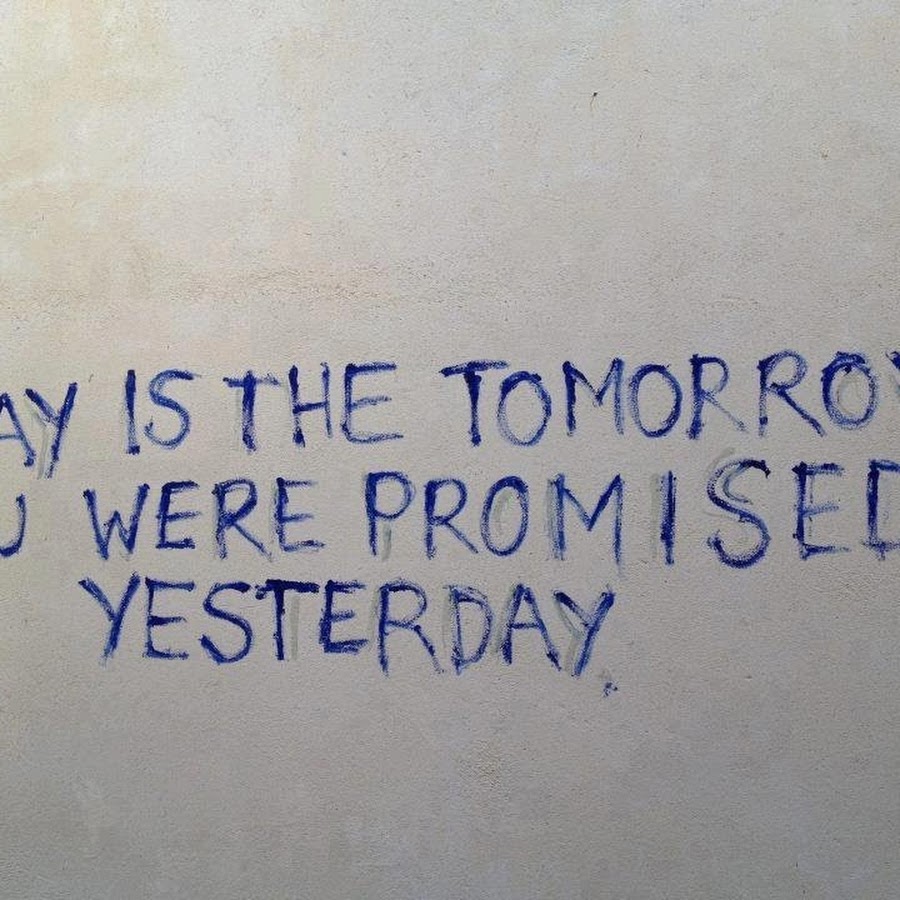 AY IS THE TOMORROW
U WERE PROMISED
YESTERDAY.